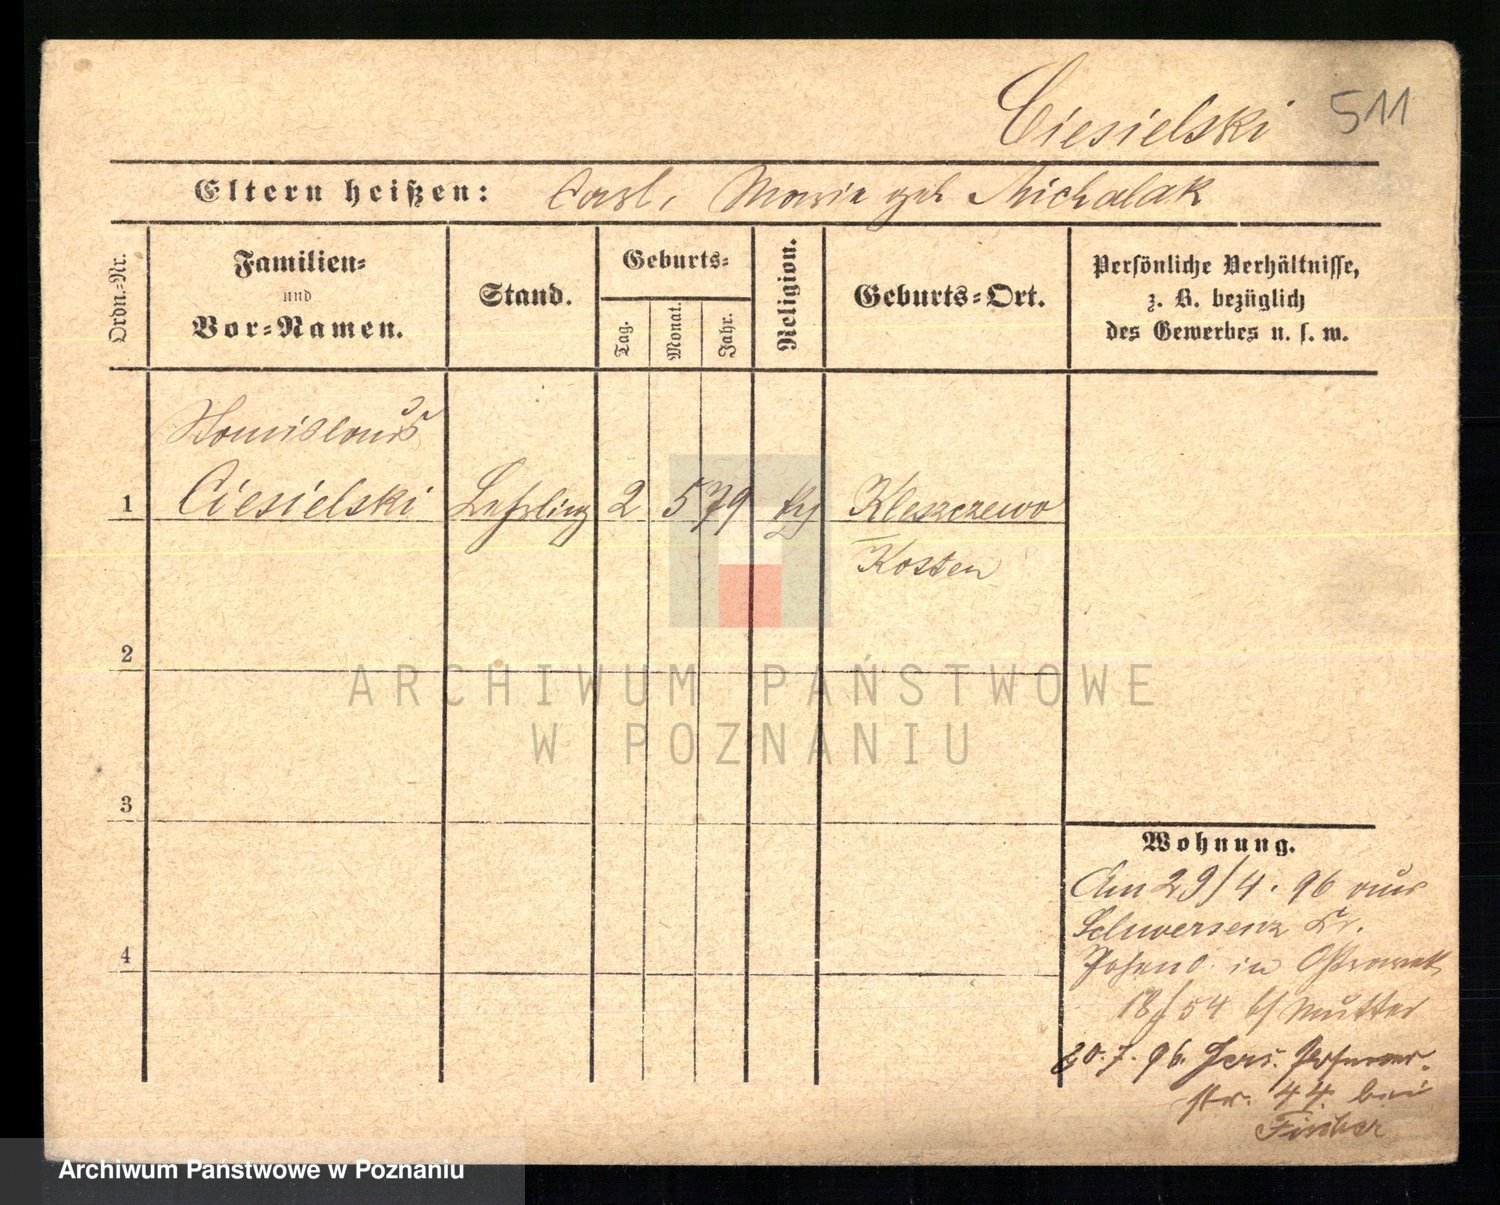 Ciesielski 511
Eltern heißen: Carl, Marie geb Michalak
Ordn.-Nr.
Familien-
und
Vor-Namen.
Stand.
Geburts-
Tag.
Monat.
Jahr.
Religion.
Geburts-Ort.
Persönliche Verhältnisse,
z. B. bezüglich
des Gewerbes u. s. w.
Stanislaus
1 Ciesielski Lehrling 2 5 79 Kleszczewo
Kosten
2
ARCHIWUM PAŃSTWOWE
W POZNANIU
3
Wohnung.
Am 29/4. 96 aus
Schwersenz Kr.
4
Posen O. in Ostrowek
18/54 b/ Mutter
20.7.96. Jers. Posener-
str. 44. bei
Fischer
Archiwum Państwowe w Poznaniu